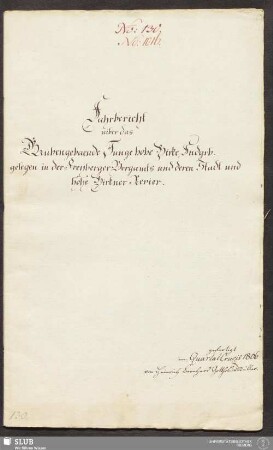 No: 130
No: 1010.
Fahrbericht
ueber das
Grubengebaeude Junge hohe Birke Fundgrb.
gelegen in der Freyberger Bergamts und deren Stadt und
Hohe Birkner Revier.
gefertigt
im Quartal Crucis 1806
von Heinrich
130
SLUB
Wir führen Wissen.